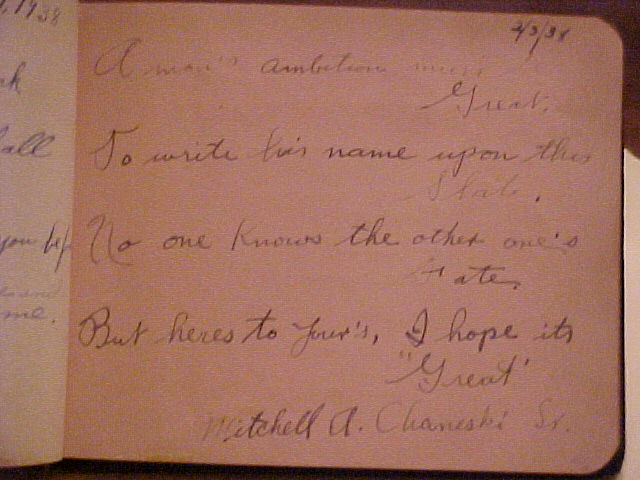 , 1938
all
you
me.
2/3/38
A man's ambition must
Great.
To write his name upon this
Slate.
No one knows the other one's
Fate.
But heres to your's, I hope its
"Great"
Mitchell A. Chaneski Sr.